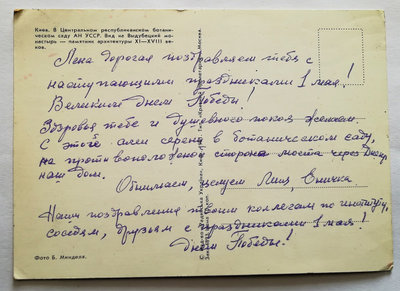 Киев. В Центральном республиканском ботаническом
саду АН УССР. Вид на Выдубецкий мо-
настырь — памятник архитектуры XI—XVIII ве-
ков.
Лена дорогая поздравляем тебя с
наступающими праздниками 1 мая!
Великим Днем Победы!
Здоровья тебе и душевного покоя желаем.
С этой алеи серени в ботаническом саду,
на противоположной стороне моста через Днепр
наш дом.
Обнимаем, целуем
Наши поздравления твоим коллегам по институту,
соседям, друзьям с праздниками 1 мая!
Днем Победы!
Фото Б. Минделя.